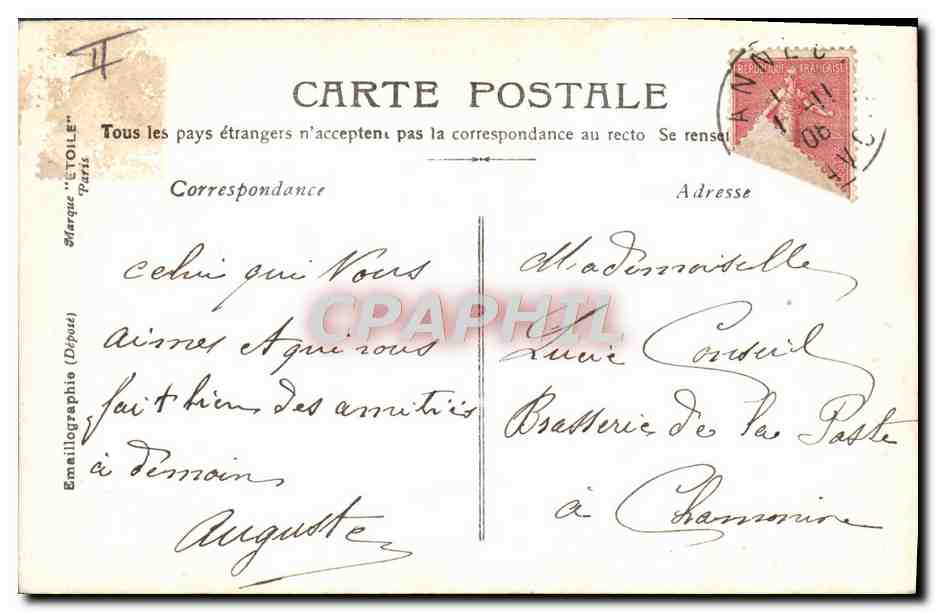 II
CARTE POSTALE
Tous les pays étrangers n'acceptent pas la correspondance au recto Se renset
RÉPUBLIQUE FRANÇAISE
ANNEC
Marque "ETOILE" Paris
Emaillographie (Déposé)
Correspondance
Adresse
celui qui Vous
aimes et qui vous
fait bien des amitiés
à demain
Auguste
Mademoiselle
Lucie Conseil
Brasserie de la Poste
à Chamonix
CPAPHIL